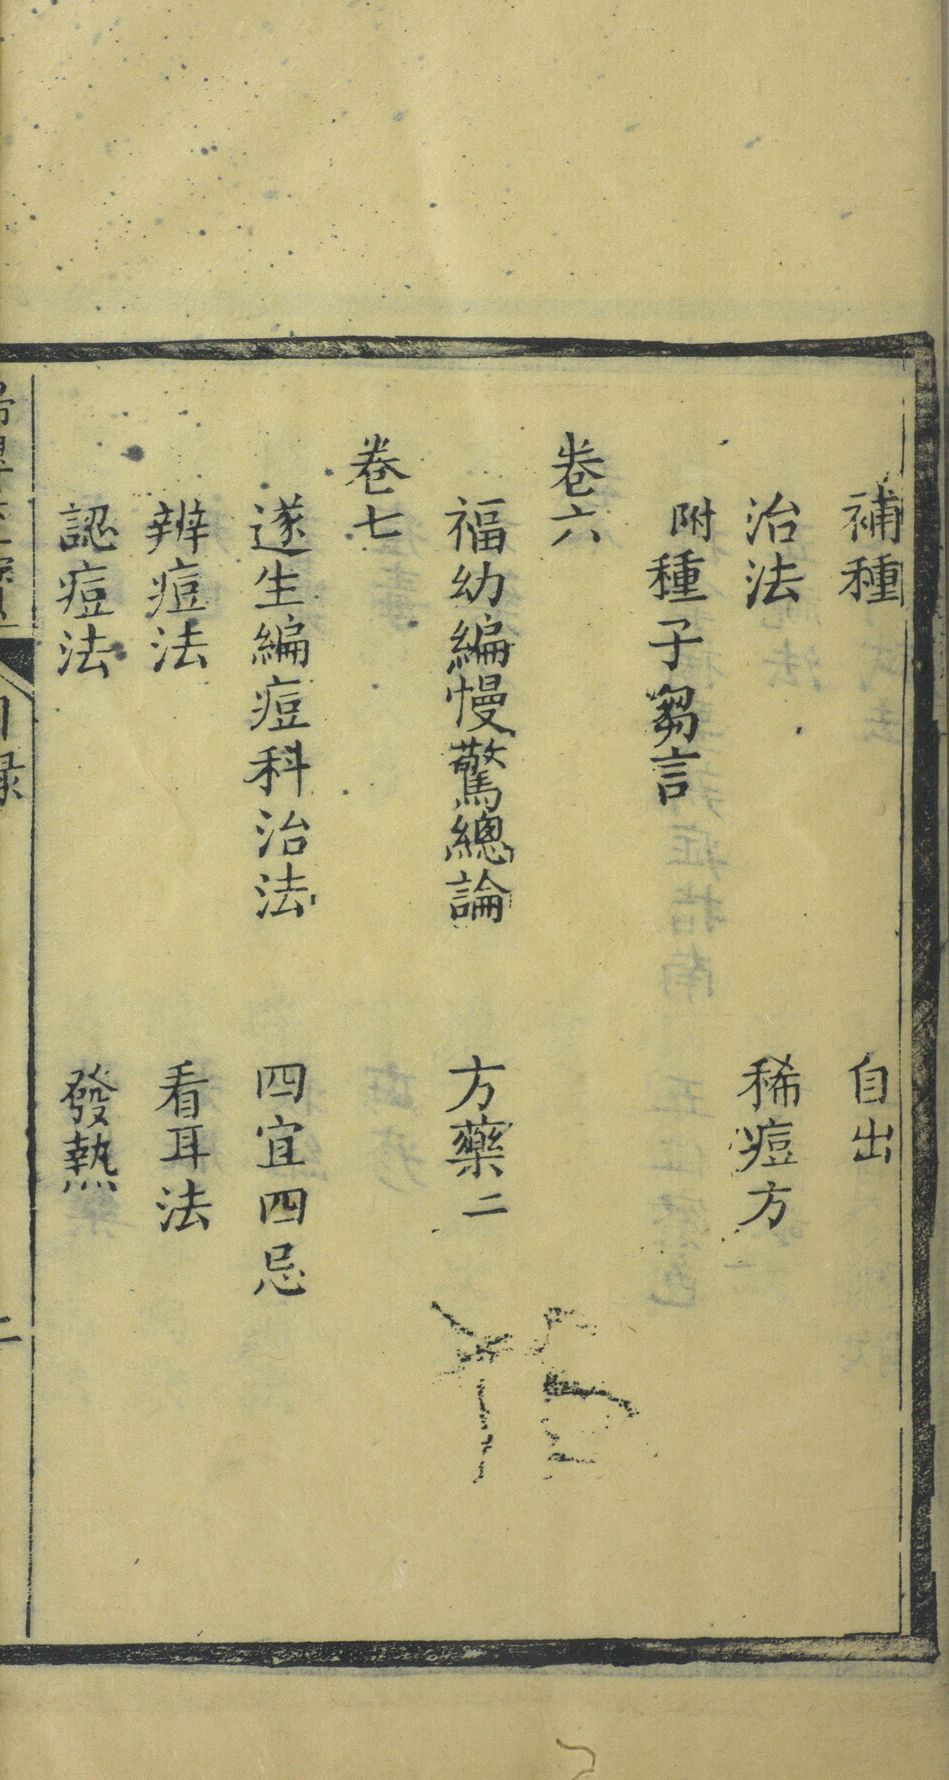 補種　自出
治法　稀痘方
附種子芻言
卷六
福幼編慢驚總論　方藥二
卷七
遂生編痘科治法　四宜四忌
辨痘法　看耳法
認痘法　發熱
目録
二